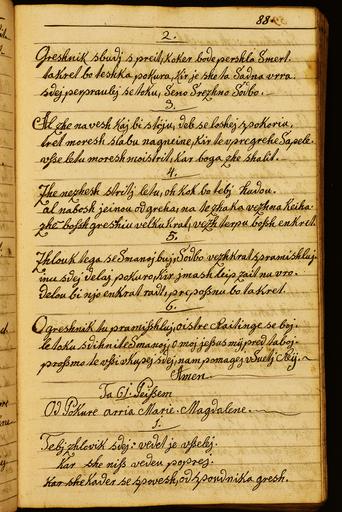 88
2.
Greshnik sbudi s preit, koker bode pershla Smert.
takret bo teshka pokura, kir je sho ta Sadna vrra.
sdej perpraulej se toku, Seno Srezhno Sodbo.
3.
Al zhe na vesh kaj bi stoju, deb se loshej spokoria,
tret moresh slabu nagneine, kir te vpregrehe Sapele.
vsse letu moresh moistrit, kar boga zhe shalit.
4.
Zhe nezhesh stritj letu, oh kok bo tebj hudou.
al nabosh jeinou od greha, na tezhaka vezhna keiha
zhe bossh greshiu velku krat, vezh terpu bossh enkrat.
5.
Zhlouk tega se Smanoj buj, Sodbo vezhkrat spramishluj
inu sdej delaj pokuro, kir jmash leip zait na vro.
delou bi njo enkrat radt, prepossnu bo takret.
6.
O greshnik tu pramisshluj, oistre Raitinge se boj.
le toku sdihnit Smanoj, O moj jesus mij pred taboj.
prossmo te vssi vkupej sdej, nam pomagej vSuetj Raj.
Amen
Ta 61. Peissem
Od Pokure arria Marie Magdalene.
1.
Tebj zhlovik sdej: vedet je vsselej.
Kar she niss vedeu popres.
kar she kader se spovesh, od spoudnika gresh.